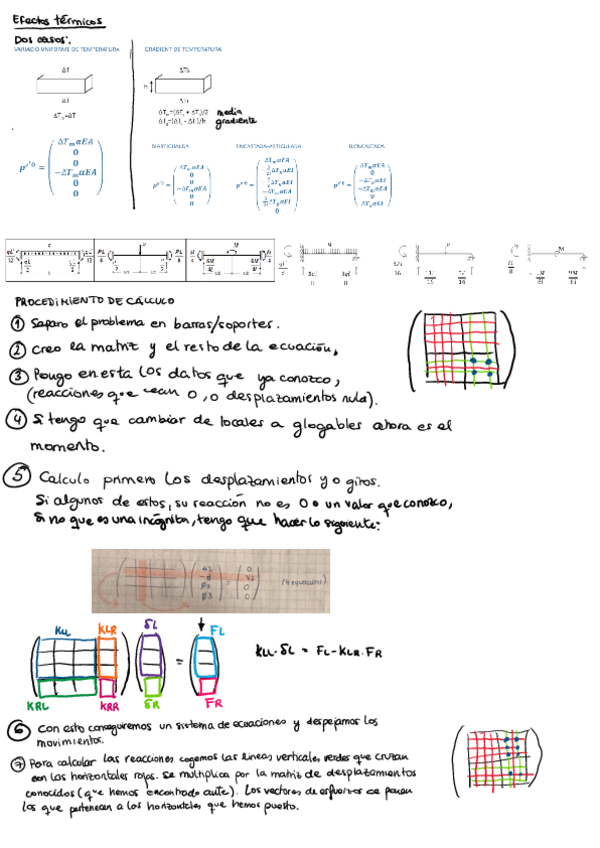 Efectos térmicos
Dos casos:
VARIACIÓ UNIFORME DE TEMPERATURA
GRADIENT DE TEMPERATURA
ΔT
ΔT
h
ΔTm=ΔT
media
gradiente
BIARTICULADA
ENCASTADA-ARTICULADA
BIENCASTADA
PROCEDIMIENTO DE CÁLCULO
① Separo el problema en barras/soportes.
② Creo la matriz y el resto de la ecuación,
③ Pongo en esta los datos que ya conozco,
(reacciones que sean 0, o desplazamientos nulos).
④ Si tengo que cambiar de locales a glogables ahora es el
momento.
⑤ Calculo primero los desplazamientos y o giros.
Si algunos de estos, su reacción no es 0 o un valor que conozco,
Si no que es una incógnita, tengo que hacer lo siguiente:
(4 equacions)
KLL KLR δL FL
KLL·δL = FL-KLR·FR
KRL KRR δR FR
⑥ Con esto conseguiremos un sistema de ecuaciones y despejamos los
movimientos.
⑦ Para calcular las reacciones cogemos las lineas verticales verdes que cruzan
con las horizontales rojas. Se multiplica por la matriz de desplazamientos
conocidos (que hemos encontrado antes). Los vectores de esfuerzos se ponen
los que pertenecen a los horizontales que hemos puesto.